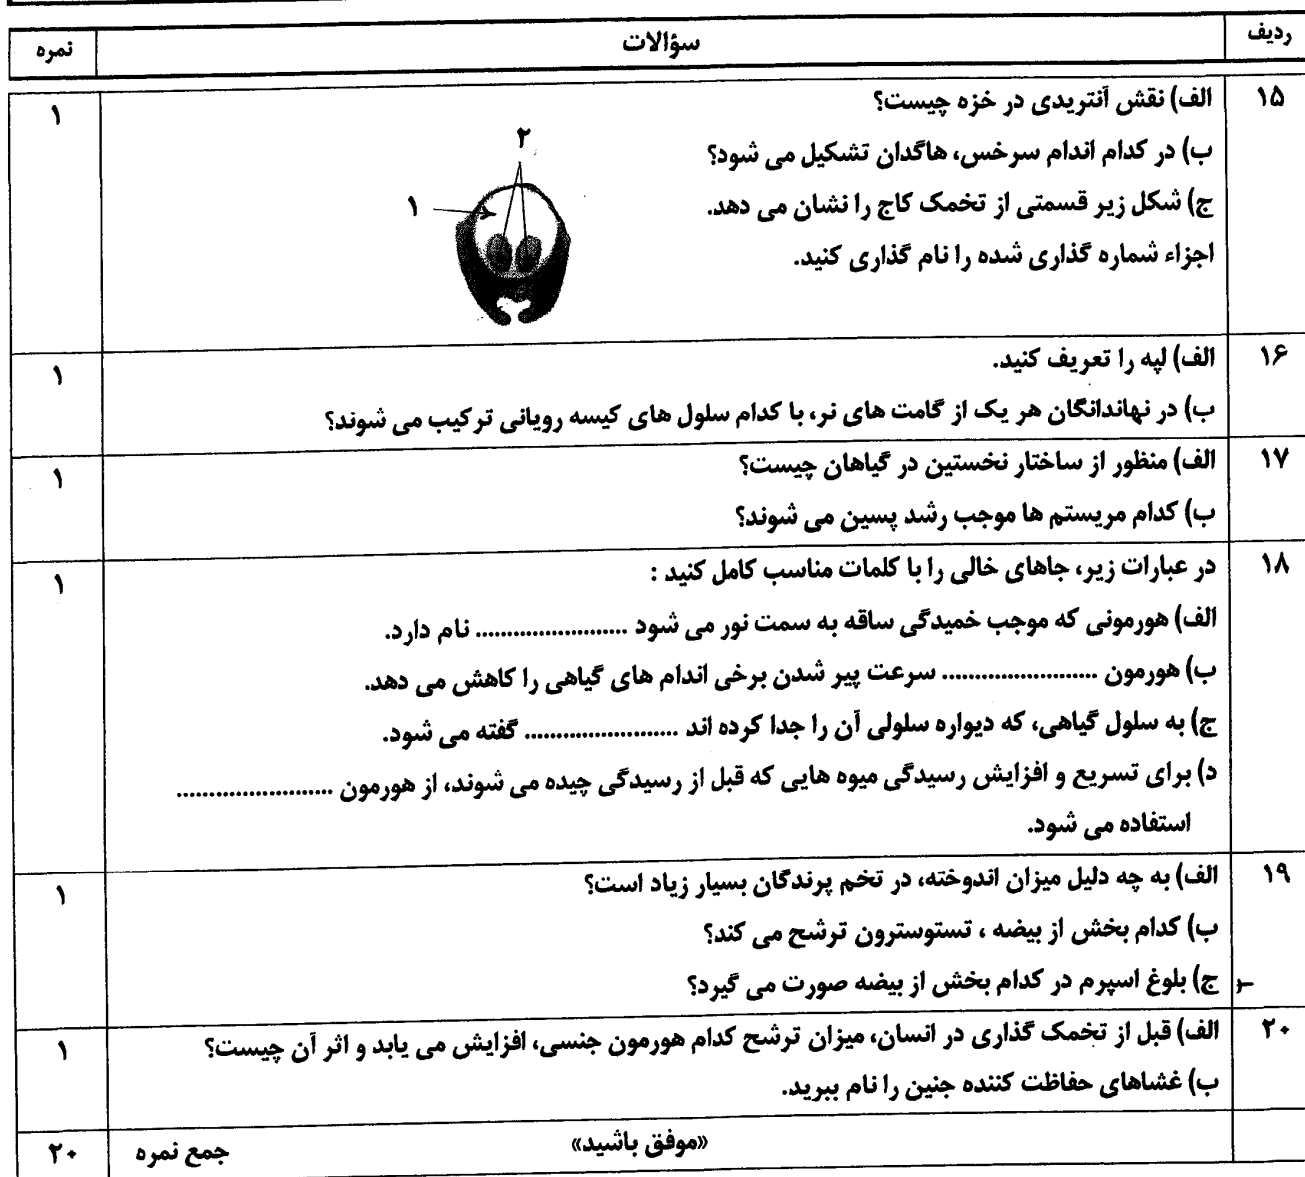 ردیف سؤالات نمره
۱۵ الف) نقش آنتریدی در خزه چیست؟ ۱
ب) در کدام اندام سرخس، هاگدان تشکیل می شود؟
ج) شکل زیر قسمتی از تخمک کاج را نشان می دهد.
اجزاء شماره گذاری شده را نام گذاری کنید.
۲
۱
۱۶ الف) لپه را تعریف کنید. ۱
ب) در نهاندانگان هر یک از گامت های نر، با کدام سلول های کیسه رویانی ترکیب می شوند؟
۱۷ الف) منظور از ساختار نخستین در گیاهان چیست؟ ۱
ب) کدام مریستم ها موجب رشد پسین می شوند؟
۱۸ در عبارات زیر، جاهای خالی را با کلمات مناسب کامل کنید : ۱
الف) هورمونی که موجب خمیدگی ساقه به سمت نور می شود ........................ نام دارد.
ب) هورمون ........................ سرعت پیر شدن برخی اندام های گیاهی را کاهش می دهد.
ج) به سلول گیاهی، که دیواره سلولی آن را جدا کرده اند ........................ گفته می شود.
د) برای تسریع و افزایش رسیدگی میوه هایی که قبل از رسیدگی چیده می شوند، از هورمون ........................
استفاده می شود.
۱۹ الف) به چه دلیل میزان اندوخته، در تخم پرندگان بسیار زیاد است؟ ۱
ب) کدام بخش از بیضه ، تستوسترون ترشح می کند؟
ج) بلوغ اسپرم در کدام بخش از بیضه صورت می گیرد؟
۲۰ الف) قبل از تخمک گذاری در انسان، میزان ترشح کدام هورمون جنسی، افزایش می یابد و اثر آن چیست؟ ۱
ب) غشاهای حفاظت کننده جنین را نام ببرید.
«موفق باشید» جمع نمره ۲۰